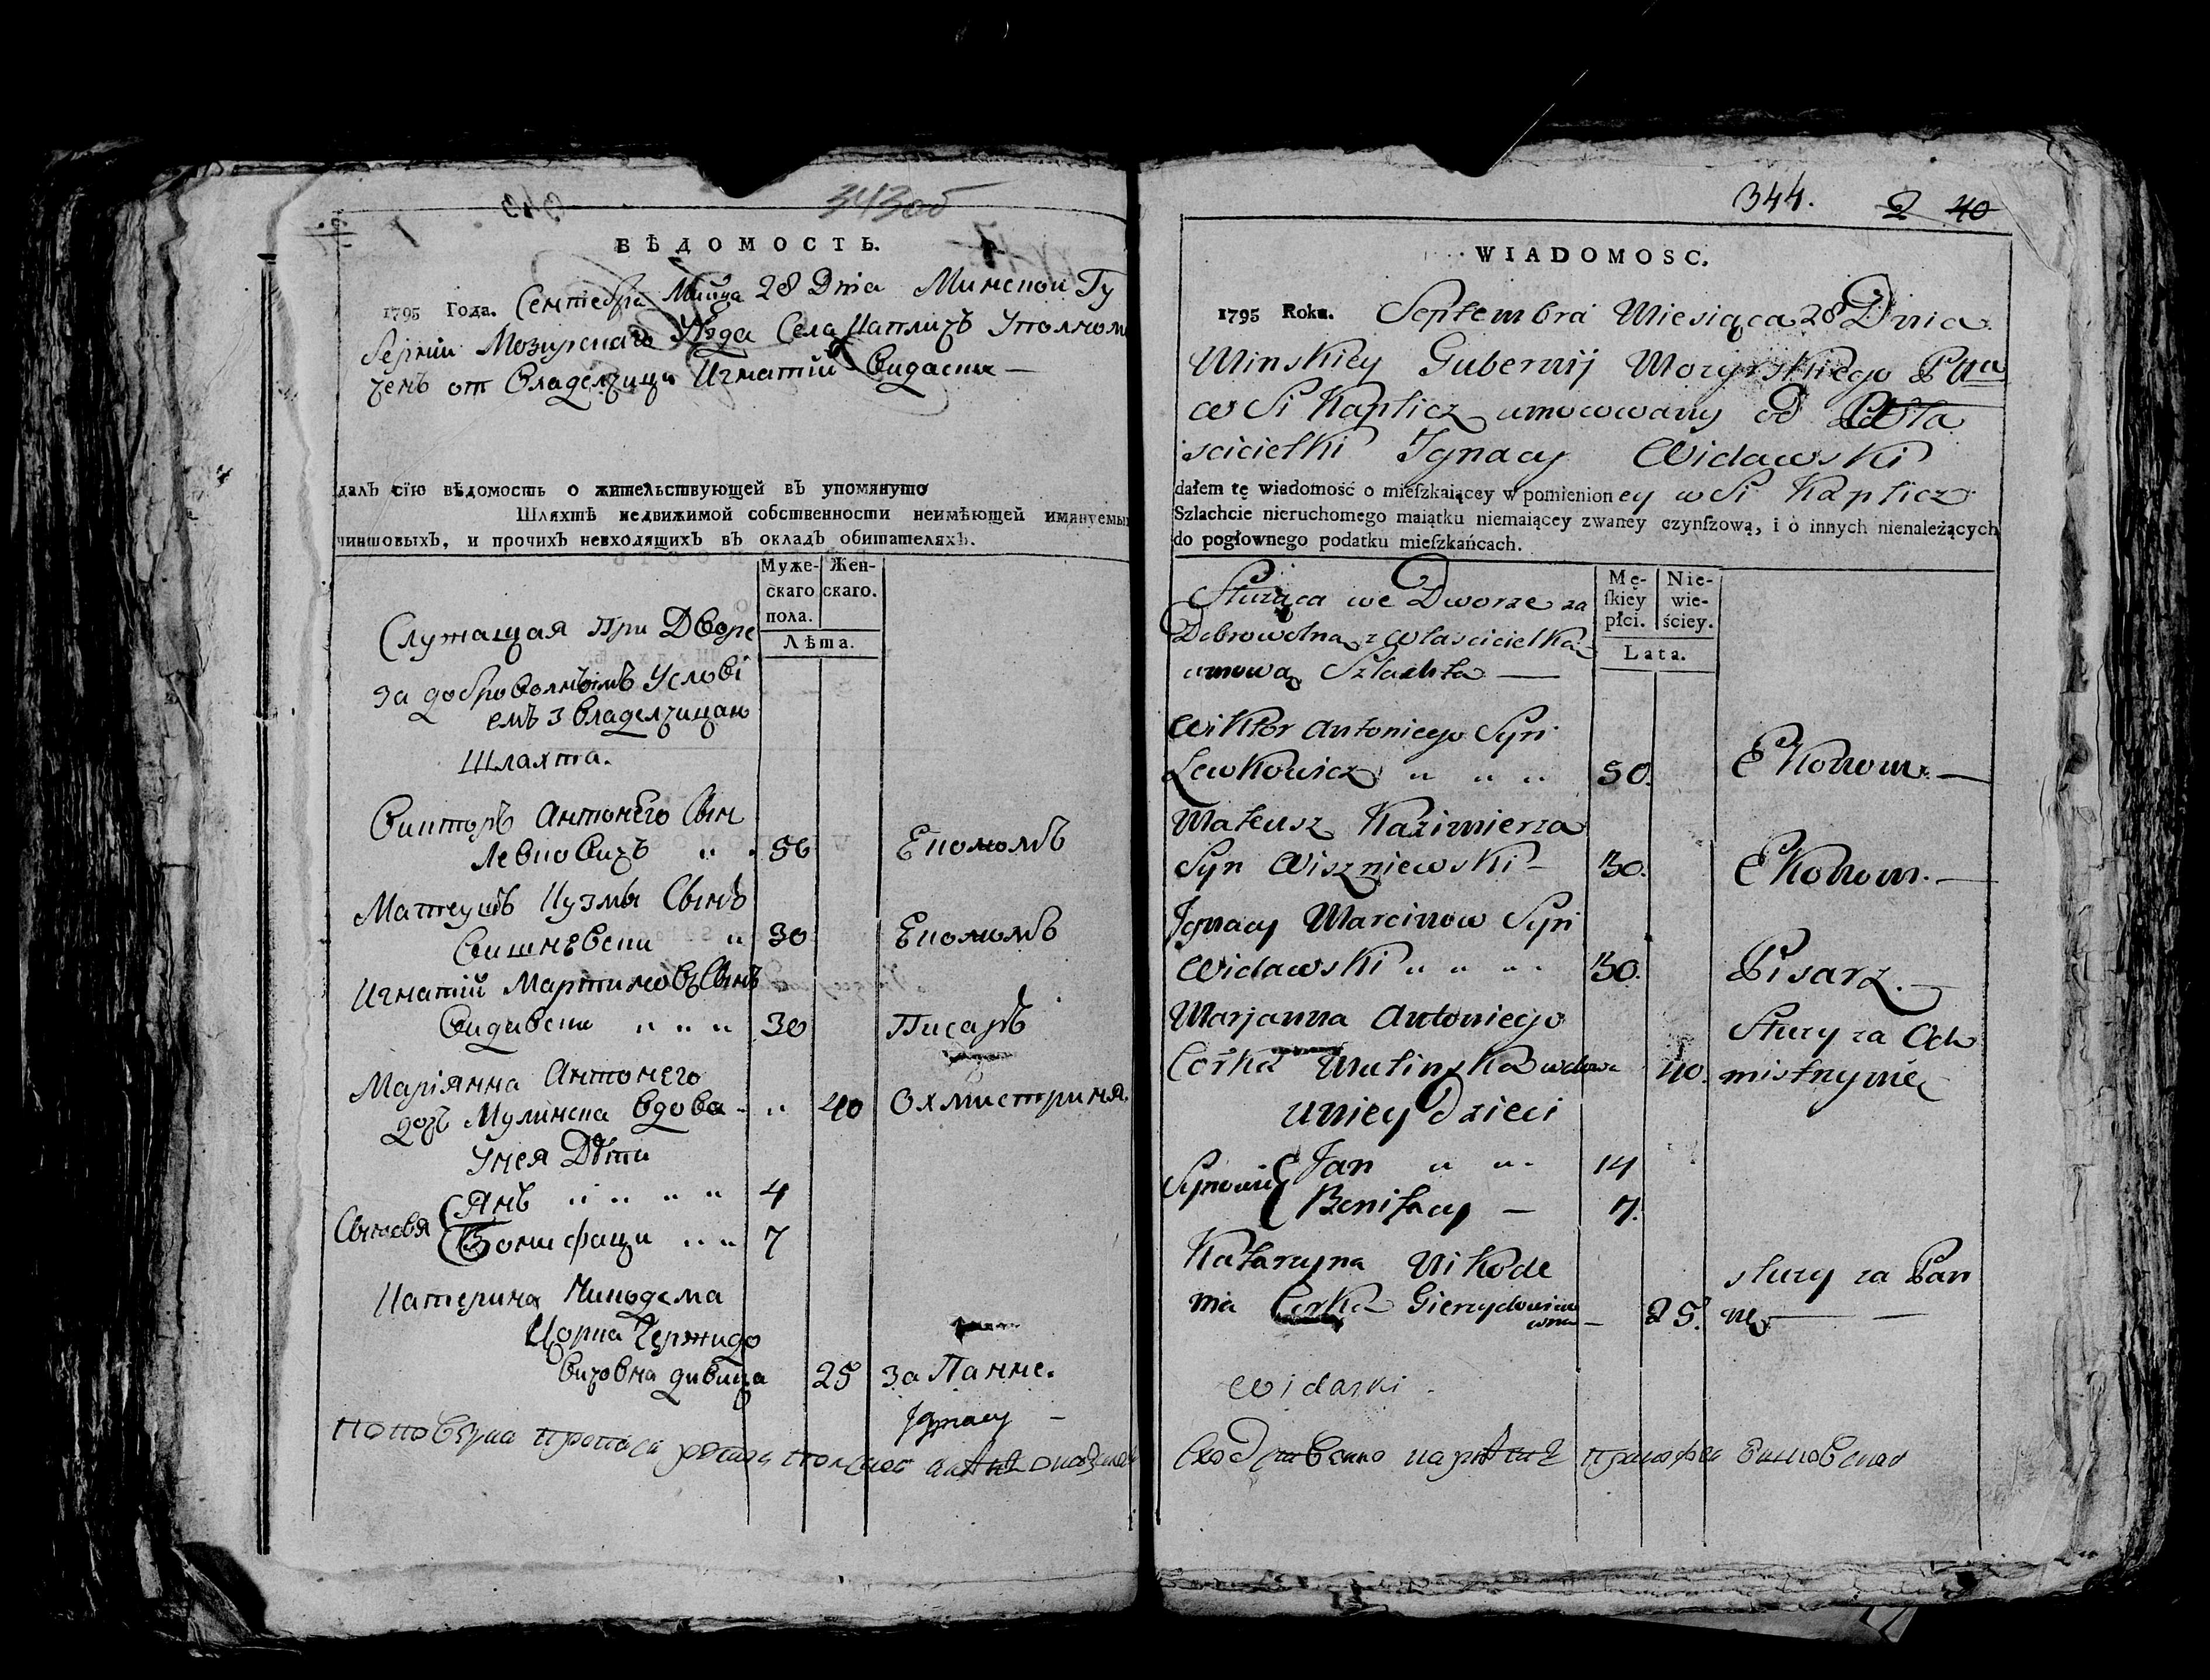 343об
ВѢДОМОСТЬ.
1795 Года. Сентебра Мйца 28 Dnia Минской Гу
берніи Мозирскаго Уезда Села Каплизъ Уполном
ченъ от Владелзици Игнатій Видаски —
далъ сїю вѣдомость о жительствующей въ упомянуто
Шляхтѣ недвижимой собственности неимѣющей имянуемы
чиншовыхъ, и прочихъ невходящихъ въ окладъ обитателяхъ.
Муже- Жен-
скаго скаго.
пола.
Лѣта.
Служащая При Дворе
за доброволнымъ Услові
емъ з владелзицаю
Шляхта.
Викторъ Антонего Сын
Левковизъ " " 50 Економъ
Матеушъ Кузмы Сынъ
Вишневски " 30 Економъ
Игнатій Мартиновъ Сынъ
Видавски " " " 30 Писаръ
Маріянна Антонего
дозъ Мулинска вдова - " 40 Охмистриня.
Унея Дѣти
Сыновя Янъ " " " " 4
Бонифаци " " 7
Катерина Никодема
Цорка Гержидо
визовна дивица 25 за Панне.
Ignacy —
344. 2 40
WIADOMOSC.
1795 Roku. Septembra Miesiąca 28 Dnia
Minskiey Gubernij Mozyrskiego Pttu
wSi Kaplicz umocowany od Wła
scicielki Ignacy Widawski
dałem tę wiadomość o mieſzkaiącey w pomienioney wSi Kaplicz
Szlachcie nieruchomego maiątku niemaiącey zwaney czynſzową, i o innych nienależących
do pogłownego podatku mieſzkańcach.
Mę- Nie-
ſkiey wie-
płci. ściey.
Lata.
Służąca we Dworze za
Dobrowolną z włascicielką
umową Szlachta —
Wiktor Antoniego Syn
Lewkowicz " " " 50. Ekonom. —
Mateusz Kazimierza
Syn Wiszniewski - 30. Ekonom. —
Ignacy Marcinow Syn
Widawski " " " " 30. Pisarz. —
Marjanna Antoniego Służy za Och
Corka Mulinska wdowa 40. mistrzynię
uniey Dzieci
Synowie Jan " " " 14
Bonifacy — 7.
Katarzyna Nikode służy za Pan
ma Corka Gierzydowiczo
wna — 25. nę —
Widaski